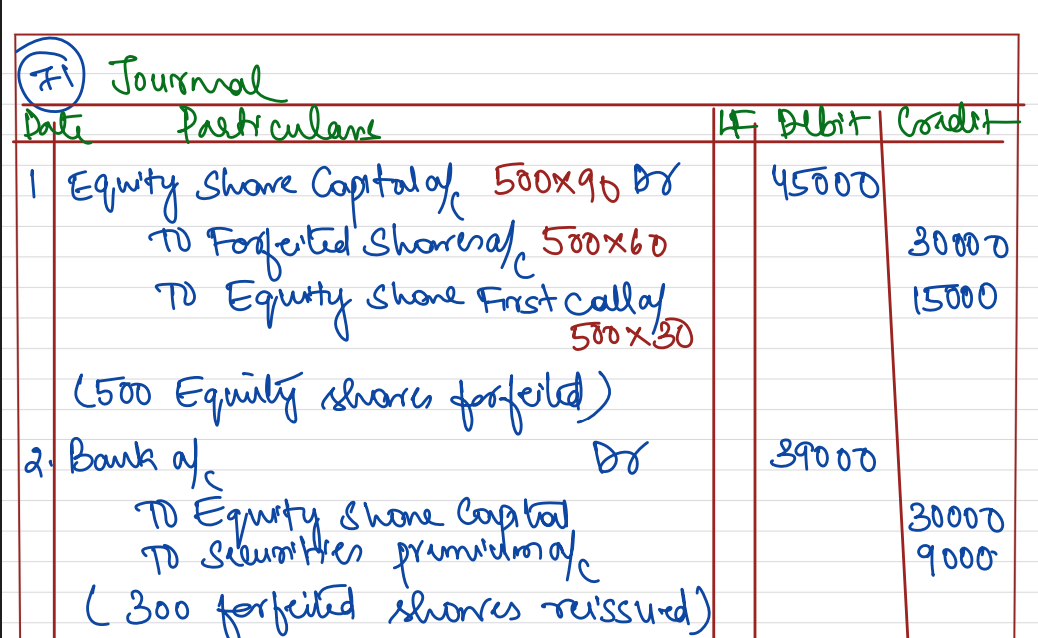 71 Journal
Date Particulars LF Debit Credit
1 Equity Share Capital a/c 500×90 Dr 45000
TO Forfeited Shares a/c 500×60 30000
TO Equity Share First call a/ 15000
500×30
(500 Equity shares forfeited)
2. Bank a/c Dr 39000
TO Equity Share Capital 30000
TO Securities premium a/c 9000
(300 forfeited shares reissued)